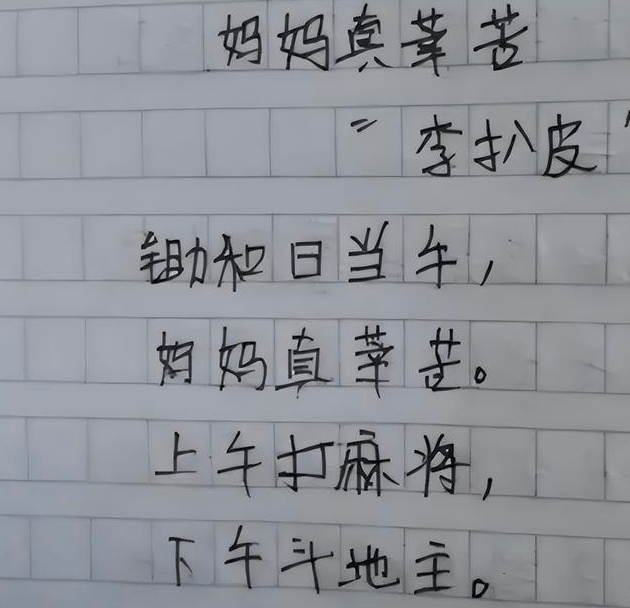 妈妈真莘苦
"李扒皮"
锄和日当午，
妈妈真莘苦。
上午打麻将，
下午斗地主。